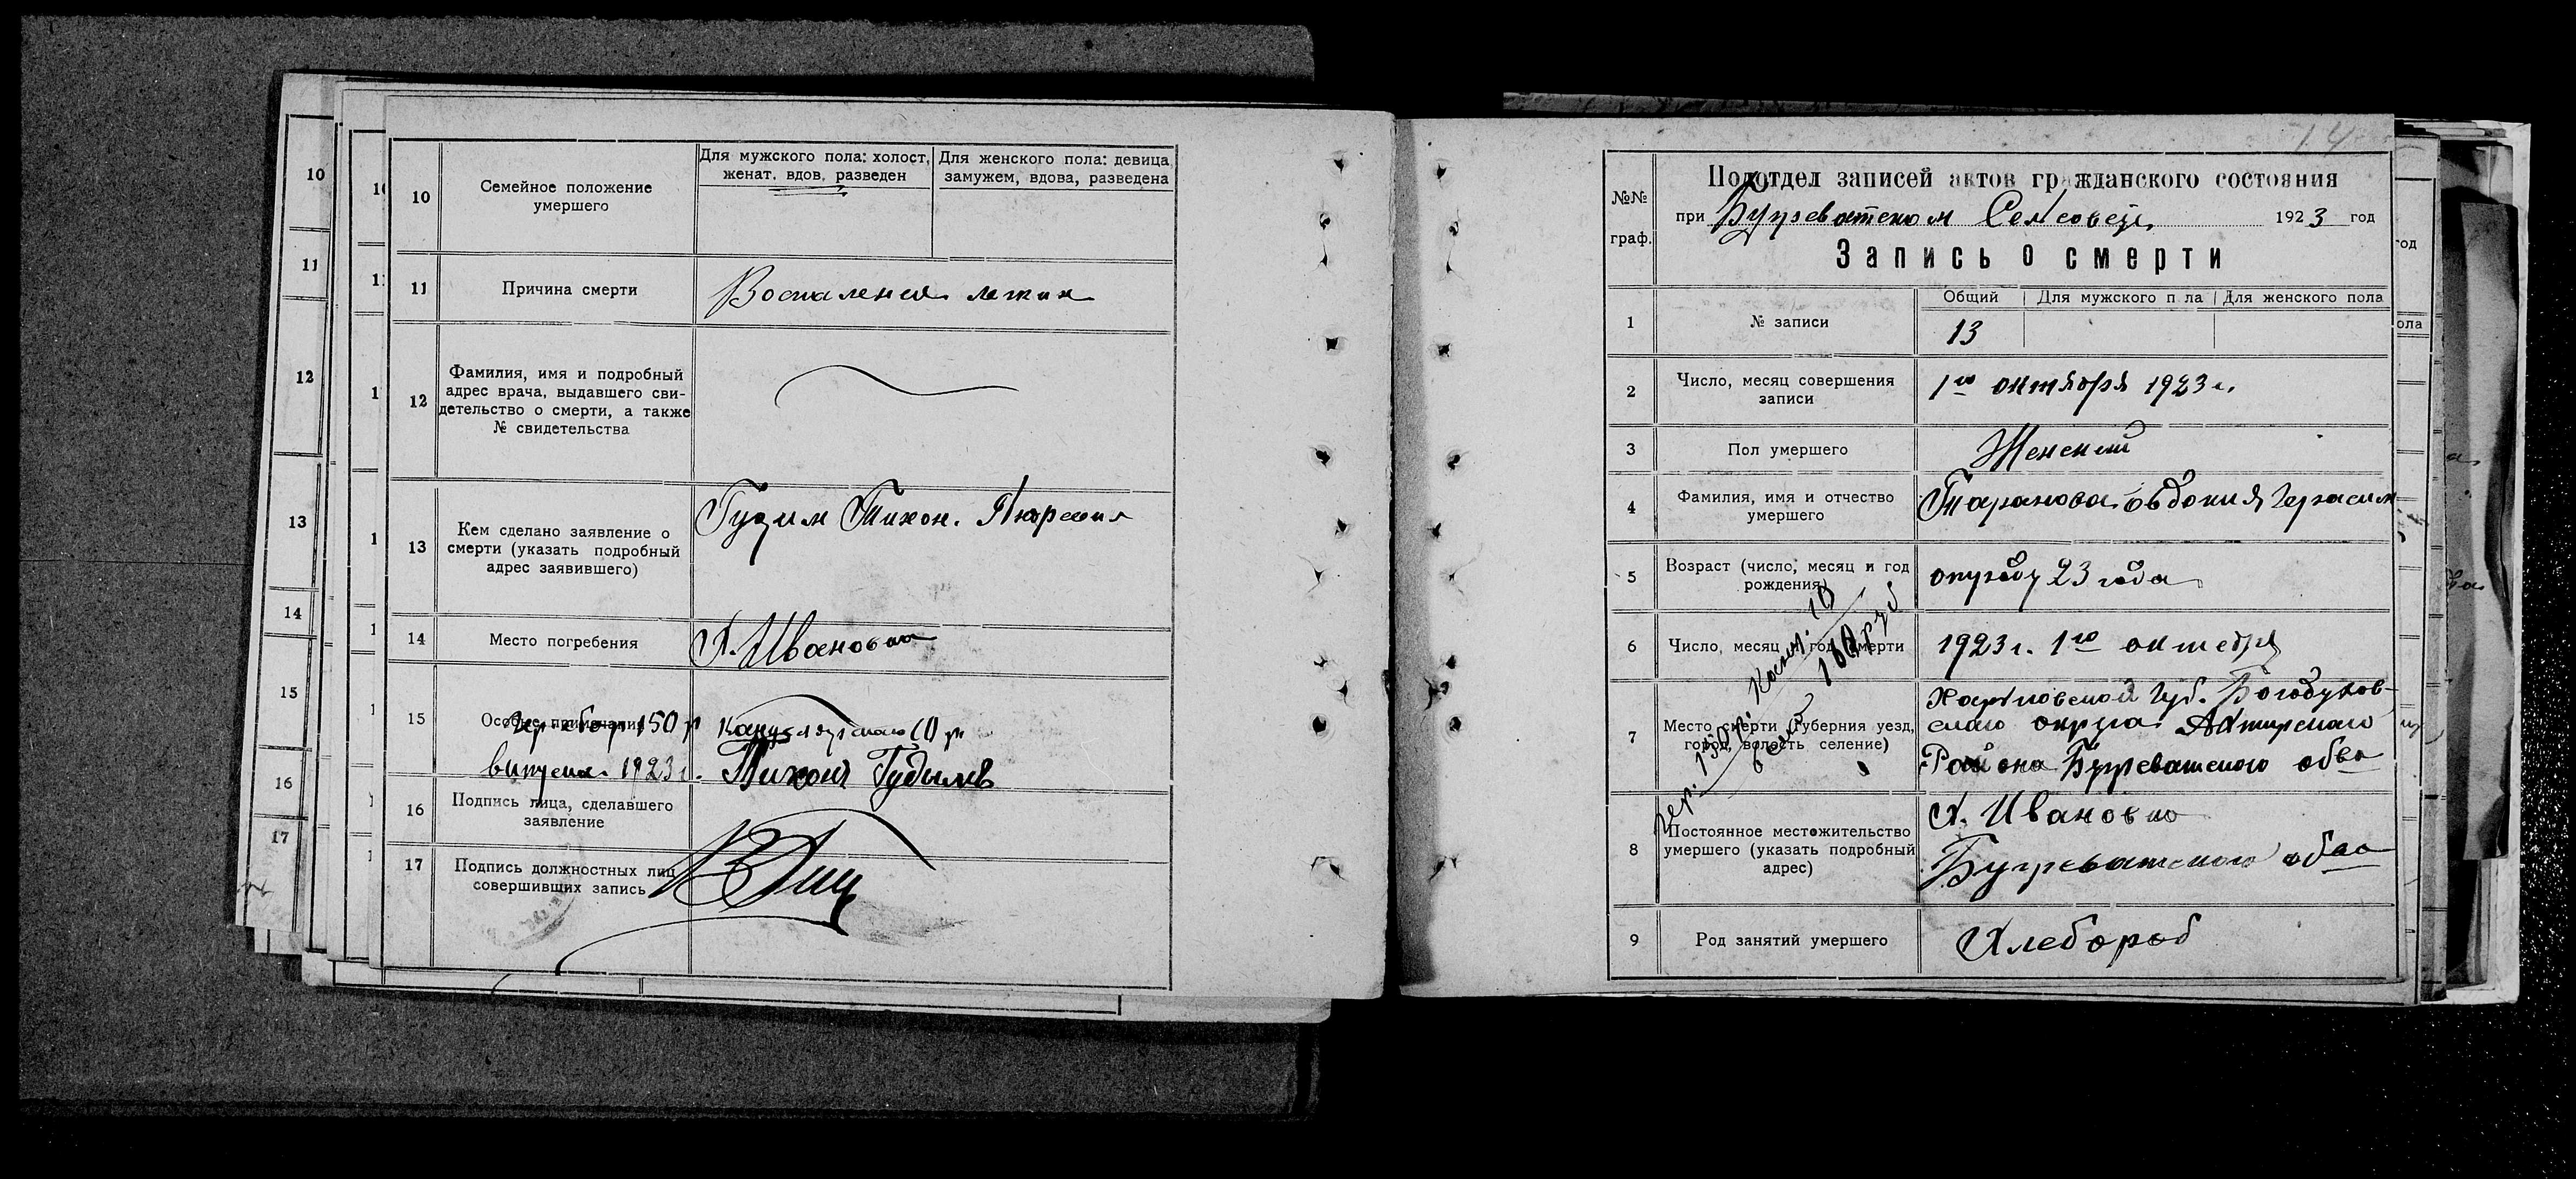 10
11
12
13
14
15
16
17
10
Семейное положение
умершего
Для мужского пола: холост,
женат, вдов, разведен
Для женского пола: девица,
замужем, вдова, разведена
11
Причина смерти
Воспаления легких
12
Фамилия, имя и подробный
адрес врача, выдавшего сви-
детельство о смерти, а также
№ свидетельства
13
Кем сделано заявление о
смерти (указать подробный
адрес заявившего)
Гудим Тихон.
14
Место погребения
Х. Ивановка
15
Особые примечания
Гер сбор 150 р канцелярского 10 р
выпуска 1923 г.
Тихон Гудымь
16
Подпись лица, сделавшего
заявление
17
Подпись должностных лиц
совершивших запись
14
№№
граф.
Подотдел записей актов гражданского состояния
при Бугреватском Сельсовете 1923 год
Запись о смерти
Общий
Для мужского п ла
Для женского пола
1
№ записи
13
2
Число, месяц совершения
записи
1го октября 1923 г.
3
Пол умершего
Женский
4
Фамилия, имя и отчество
умершего
Таранова Овдокия Герасим
5
Возраст (число, месяц и год
рождения)
23 года
6
Число, месяц год смерти
1923 г. 1го октебря
7
Место смерти (губерния уезд,
город, волость селение)
Харьковской Губ. Богодухов-
ского округа Ахтирского
Района Бугреватского обва
Гер. 150 р. Канц. 10
160 руб
8
Постоянное местожительство
умершего (указать подробный
адрес)
Х. Ивановка
Бугреватского обва
9
Род занятий умершего
Хлебороб